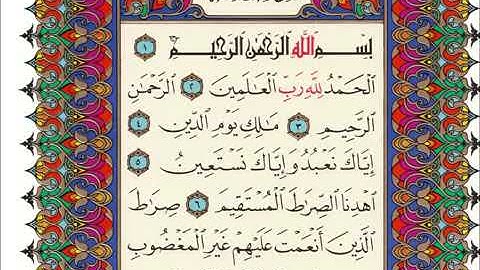 بِسْمِ اللَّهِ الرَّحْمَٰنِ الرَّحِيمِ ١
الْحَمْدُ لِلَّهِ رَبِّ الْعَالَمِينَ ٢ الرَّحْمَٰنِ
الرَّحِيمِ ٣ مَالِكِ يَوْمِ الدِّينِ ٤
إِيَّاكَ نَعْبُدُ وَإِيَّاكَ نَسْتَعِينُ ٥
اهْدِنَا الصِّرَاطَ الْمُسْتَقِيمَ ٦ صِرَاطَ
الَّذِينَ أَنْعَمْتَ عَلَيْهِمْ غَيْرِ الْمَغْضُوبِ